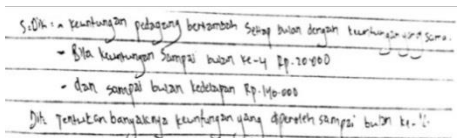 5. Dik : - keuntungan pedagang bertambah setiap bulan dengan keuntungan yang sama.
- Bila keuntungan sampai bulan ke-4 Rp. 20.000
- dan sampai bulan kedelapan Rp. 140.000
Dit. Tentukan banyaknya keuntungan yang diperoleh sampai bulan ke-